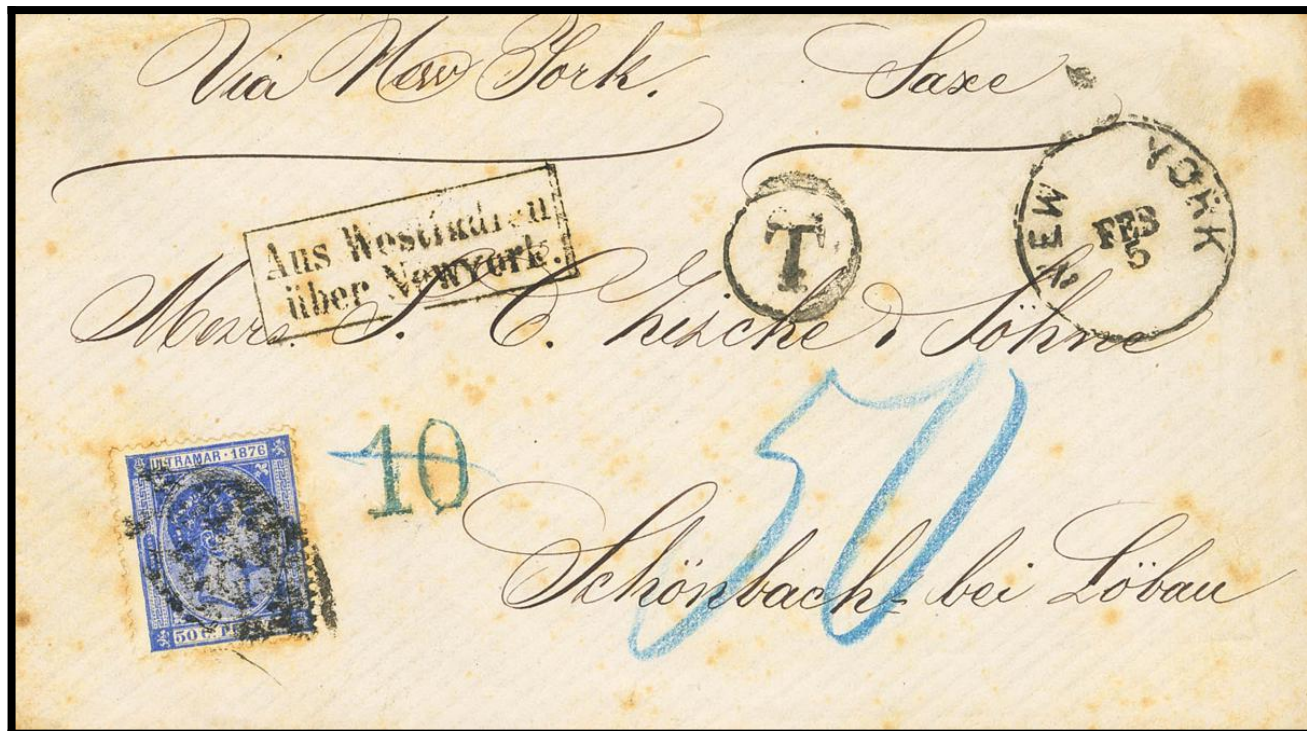 Via New York. Saxe
Aus Westindien
über Newyork.
T
NEW YORK
FEB
5
Messrs. J. C. & Söhne
ULTRAMAR · 1876
10
50
Schönbach bei Löbau
50 C.